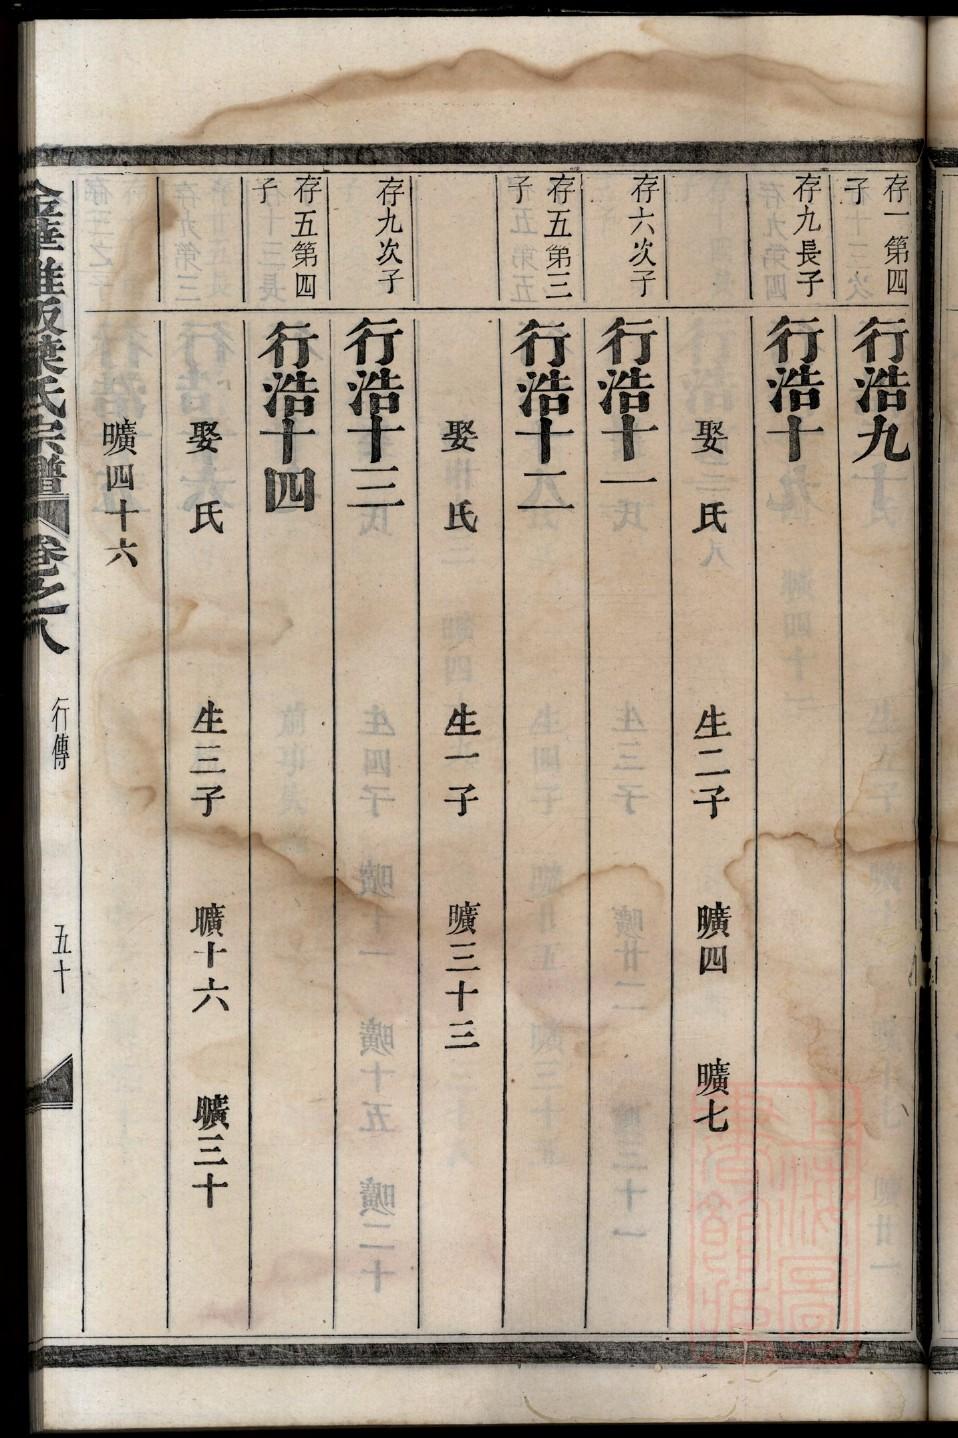 存一第四子
行浩九
存九長子
行浩十
娶 氏 生二子 曠四 曠七
存六次子
行浩十一
存五第三子
行浩十二
娶 氏 生一子 曠三十三
存九次子
行浩十三
存五第四子
行浩十四
娶 氏 生三子 曠十六 曠三十
曠四十六
金華雅畈葉氏宗譜 卷之八 行傳 五十